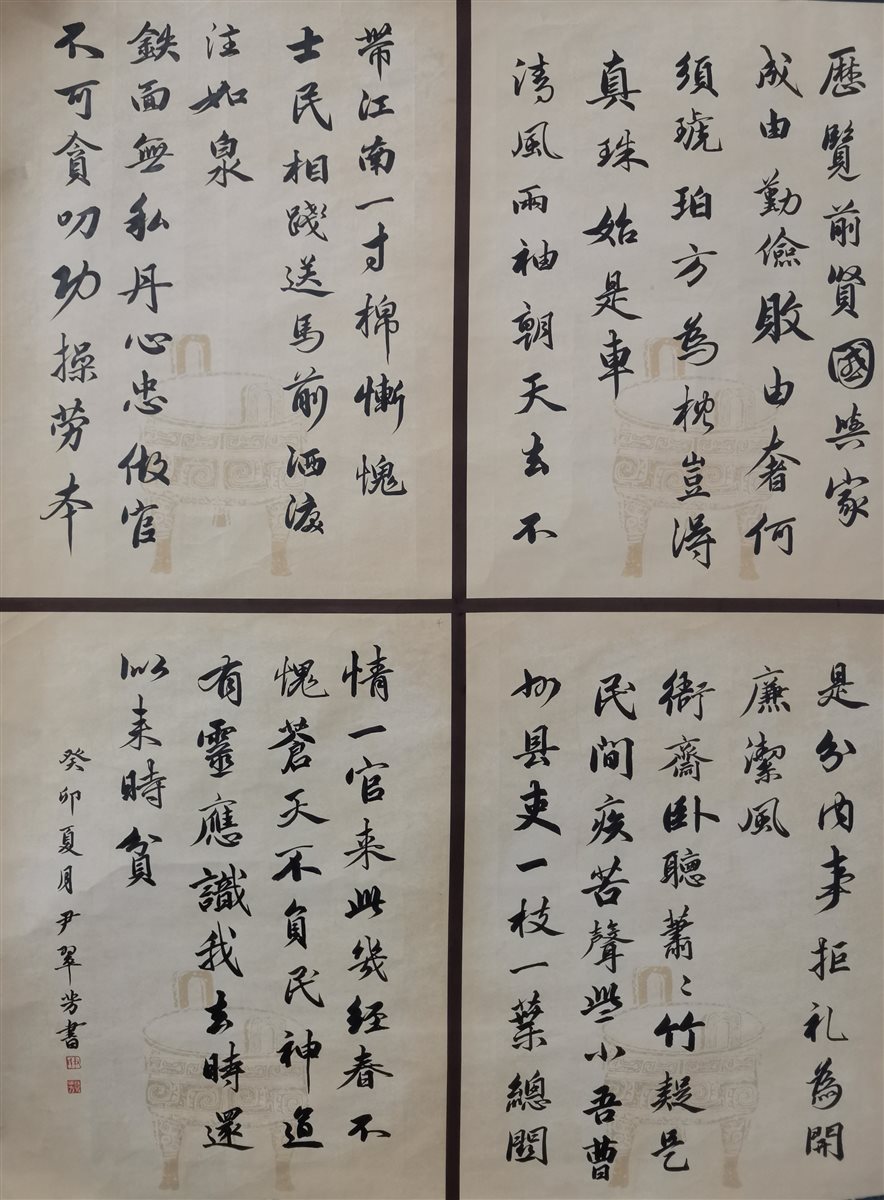 歷覽前賢國與家
成由勤儉敗由奢何
須琥珀方為枕豈得
真珠始是車
清風兩袖朝天去不
帶江南一寸棉慚愧
士民相踐送馬前洒淚
注如泉
鉄面無私丹心忠做官
不可貪叨功操勞本
是分内事拒礼為開
廉潔風
衙齋卧聽蕭〻竹疑是
民間疾苦聲些小吾曹
州县吏一枝一葉總関
情一官来此幾經春不
愧蒼天不負民神道
有靈應識我去時還
似来時貧
癸卯夏月尹翠芳書